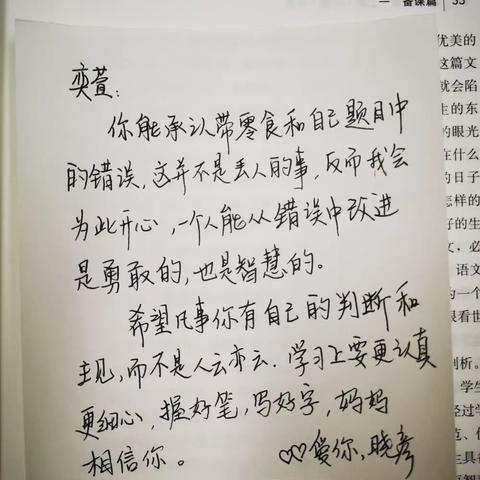 备课篇 33
奕萱:
你能承认带零食和自己题目中
的错误,这并不是丢人的事,反而我会
为此开心,一个人能从错误中改进
是勇敢的,也是智慧的。
希望凡事你有自己的判断和
主见,而不是人云亦云.学习上要更认真
更细心,握好笔,写好字,妈妈
相信你。 ♡♡爱你,晓彦
优美的
这篇文
就会陷
生的东
的眼光
在什么
的日子
怎样的
好的生
文,必
语文
的一个
眼看世
剖析。
学生
经过学
范、
生具备